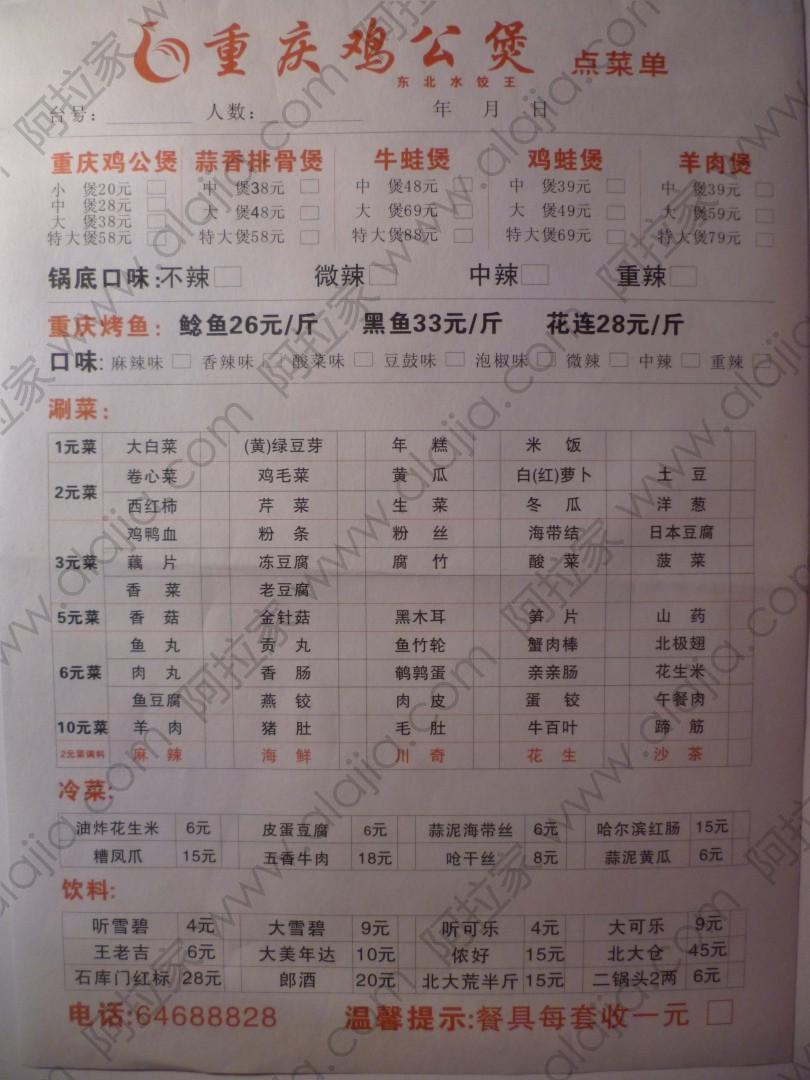 重庆鸡公煲 点菜单
东北水饺王
台号: 人数: 年 月 日
重庆鸡公煲 蒜香排骨煲 牛蛙煲 鸡蛙煲 羊肉煲
小 煲20元 中 煲38元 中 煲48元 中 煲39元 中 煲39元
中 煲28元 大 煲48元 大 煲69元 大 煲49元 大 煲59元
大 煲38元
特大煲58元 特大煲58元 特大煲88元 特大煲69元 特大煲79元
锅底口味:不辣 微辣 中辣 重辣
重庆烤鱼: 鲶鱼26元/斤 黑鱼33元/斤 花连28元/斤
口味: 麻辣味 香辣味 酸菜味 豆鼓味 泡椒味 微辣 中辣 重辣
涮菜:
1元菜 大白菜 (黄)绿豆芽 年 糕 米 饭
2元菜 卷心菜 鸡毛菜 黄 瓜 白(红)萝卜 土 豆
西红柿 芹 菜 生 菜 冬 瓜 洋 葱
3元菜 鸡鸭血 粉 条 粉 丝 海带结 日本豆腐
藕 片 冻豆腐 腐 竹 酸 菜 菠 菜
香 菜 老豆腐
5元菜 香 菇 金针菇 黑木耳 笋 片 山 药
6元菜 鱼 丸 贡 丸 鱼竹轮 蟹肉棒 北极翅
肉 丸 香 肠 鹌鹑蛋 亲亲肠 花生米
鱼豆腐 燕 饺 肉 皮 蛋 饺 午餐肉
10元菜 羊 肉 猪 肚 毛 肚 牛百叶 蹄 筋
2元菜调料 麻 辣 海 鲜 川 奇 花 生 沙 茶
冷菜:
油炸花生米 6元 皮蛋豆腐 6元 蒜泥海带丝 6元 哈尔滨红肠 15元
糟凤爪 15元 五香牛肉 18元 呛干丝 8元 蒜泥黄瓜 6元
饮料:
听雪碧 4元 大雪碧 9元 听可乐 4元 大可乐 9元
王老吉 6元 大美年达 10元 侬好 15元 北大仓 45元
石库门红标 28元 郎酒 20元 北大荒半斤 15元 二锅头2两 6元
电话:64688828 温馨提示:餐具每套收一元
阿拉家 www.alajia.com